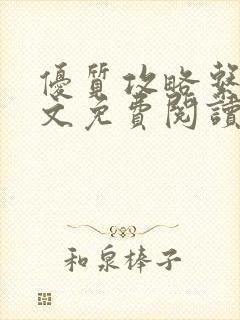 優質攻略繫
文免費閱讀
和泉棒子